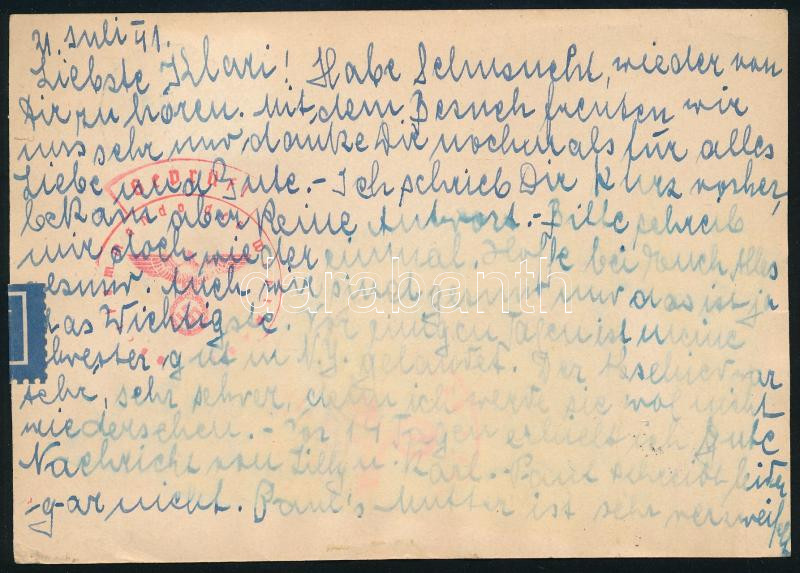 31. Juli 41.
Liebste Klari! Habe Sehnsucht, wieder von
Dir zu hören. Mit dem Besuch freuten wir
uns sehr nur, danke Dir nochmals für alles
Liebe und Gute. - Ich schrieb Dir kurz vorher,
bekam aber keine Antwort. - Bitte schreib
mir doch wieder einmal. Hoffe bei Euch Alles
gesund. Auch wir sind gesund nur das ist ja
das Wichtigste. Vor einigen Tagen ist meine
Schwester gut in N.Y. gelandet. Der Abschied war
sehr, sehr schwer, denn ich werde sie wol nicht
wiedersehen. - Vor 14 Tagen erhielt ich gute
Nachricht von Lilly u. Karl. - Paul schreibt leider
gar nicht. Paul's Mutter ist sehr verzweifelt
Geprüft
darabanth